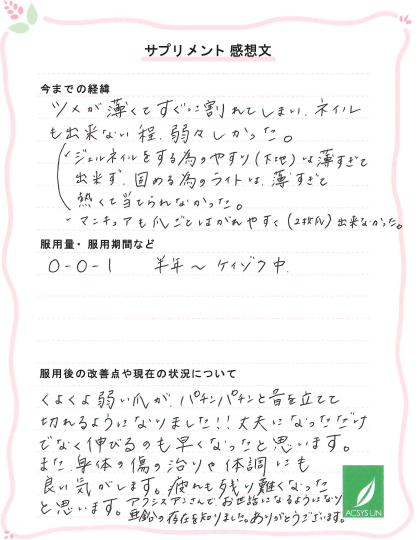 サプリメント 感想文
今までの経緯
ツメが薄くてすぐに割れてしまい、ネイル
も出来ない程、弱々しかった。
・ジェルネイルをする為のやすり(下地)は薄すぎて
出来ず、固める為のライトは、薄すぎて
熱くて当てられなかった。
・マニキュアも爪ごとはがれやすく(2枚爪)出来なかった。
服用量・服用期間など
0-0-1 半年〜ケイゾク中.
服用後の改善点や現在の状況について
くよくよ弱い爪が、パチンパチンと音を立てて
切れるようになりました!! 丈夫になっただけ
でなく伸びるのも早くなったと思います。
また、身体の傷の治りや体調にも
良い気がします。疲れも残り難くなった
と思います。アクシスアンさんで、お世話になるようになり
亜鉛の存在を知りました。ありがとうございます。
ACSYS UN